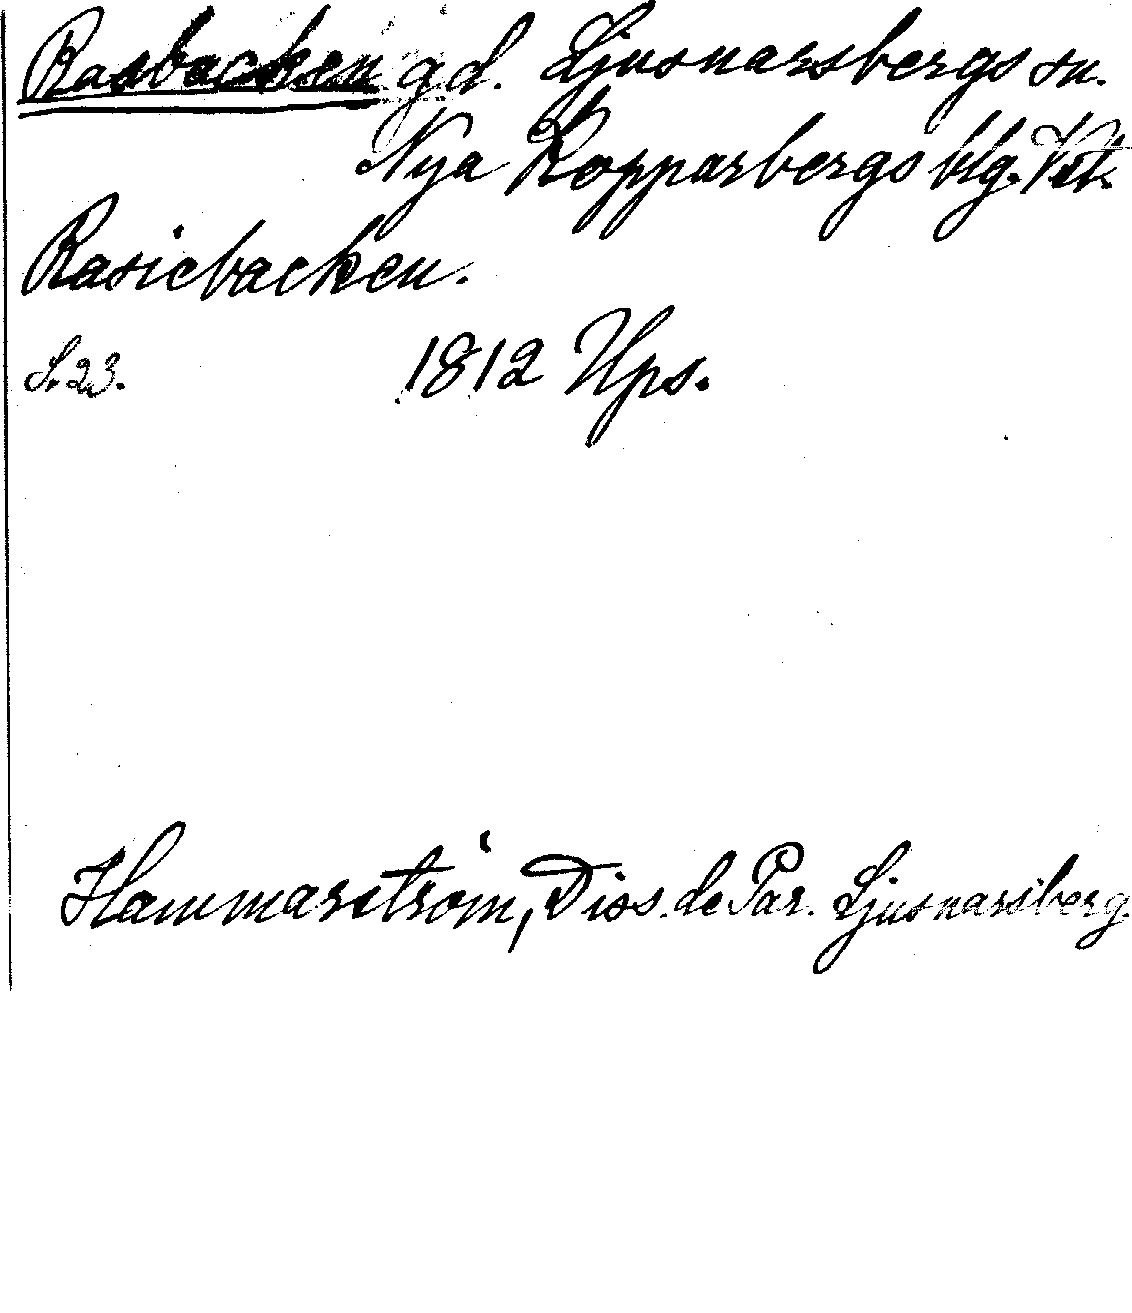 Rasbacken gd. Ljusnarsbergs sn.
Nya Kopparbergs blg. Vstm.
Rasiebacken.
S. 23. 1812 Ups.
Hammarström, Diss. de Par. Ljusnarsberg.